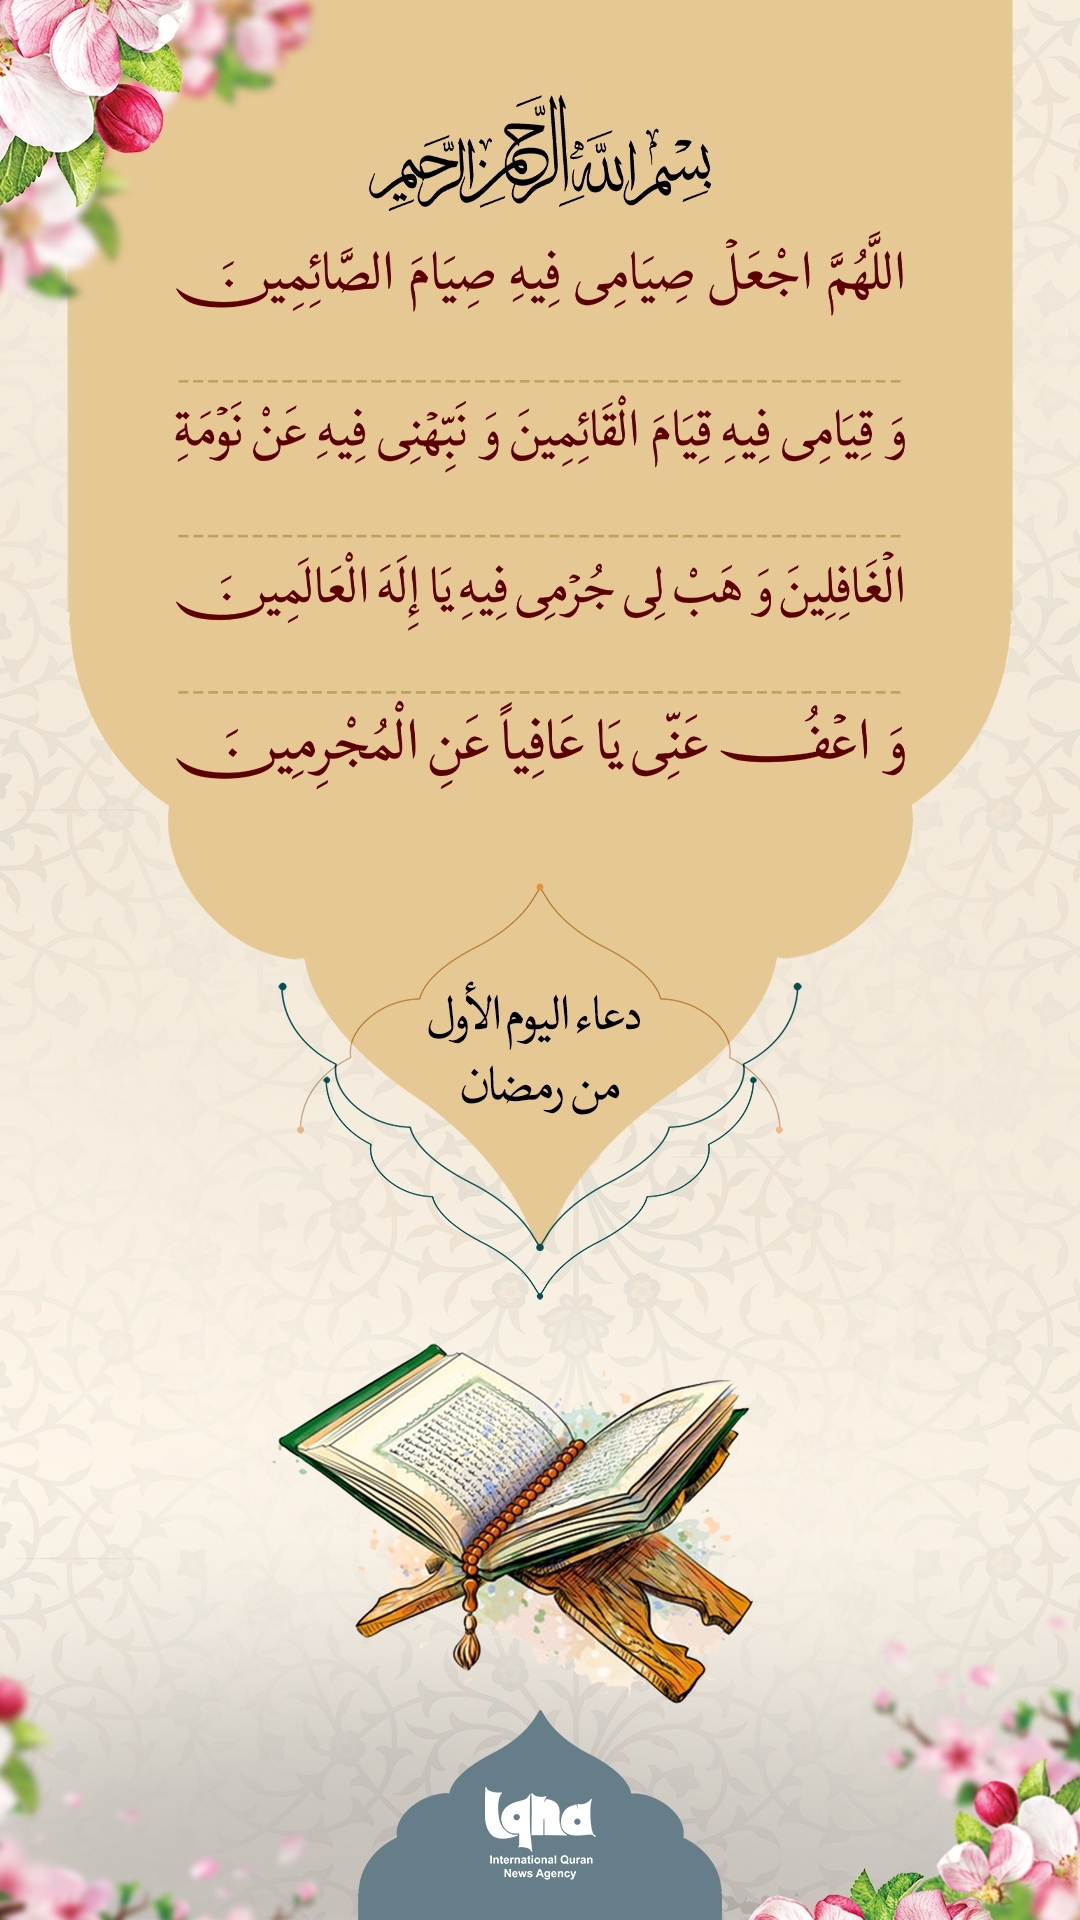 بِسْمِ اللَّهِ الرَّحْمَنِ الرَّحِيمِ
اللَّهُمَّ اجْعَلْ صِيَامِی فِيهِ صِيَامَ الصَّائِمِينَ
وَ قِيَامِی فِيهِ قِيَامَ الْقَائِمِينَ وَ نَبِّهْنِی فِيهِ عَنْ نَوْمَةِ
الْغَافِلِينَ وَ هَبْ لِی جُرْمِی فِيهِ يَا إِلَهَ الْعَالَمِينَ
وَ اعْفُ عَنِّی يَا عَافِياً عَنِ الْمُجْرِمِينَ
دعاء اليوم الأول
من رمضان
iqna
International Quran
News Agency